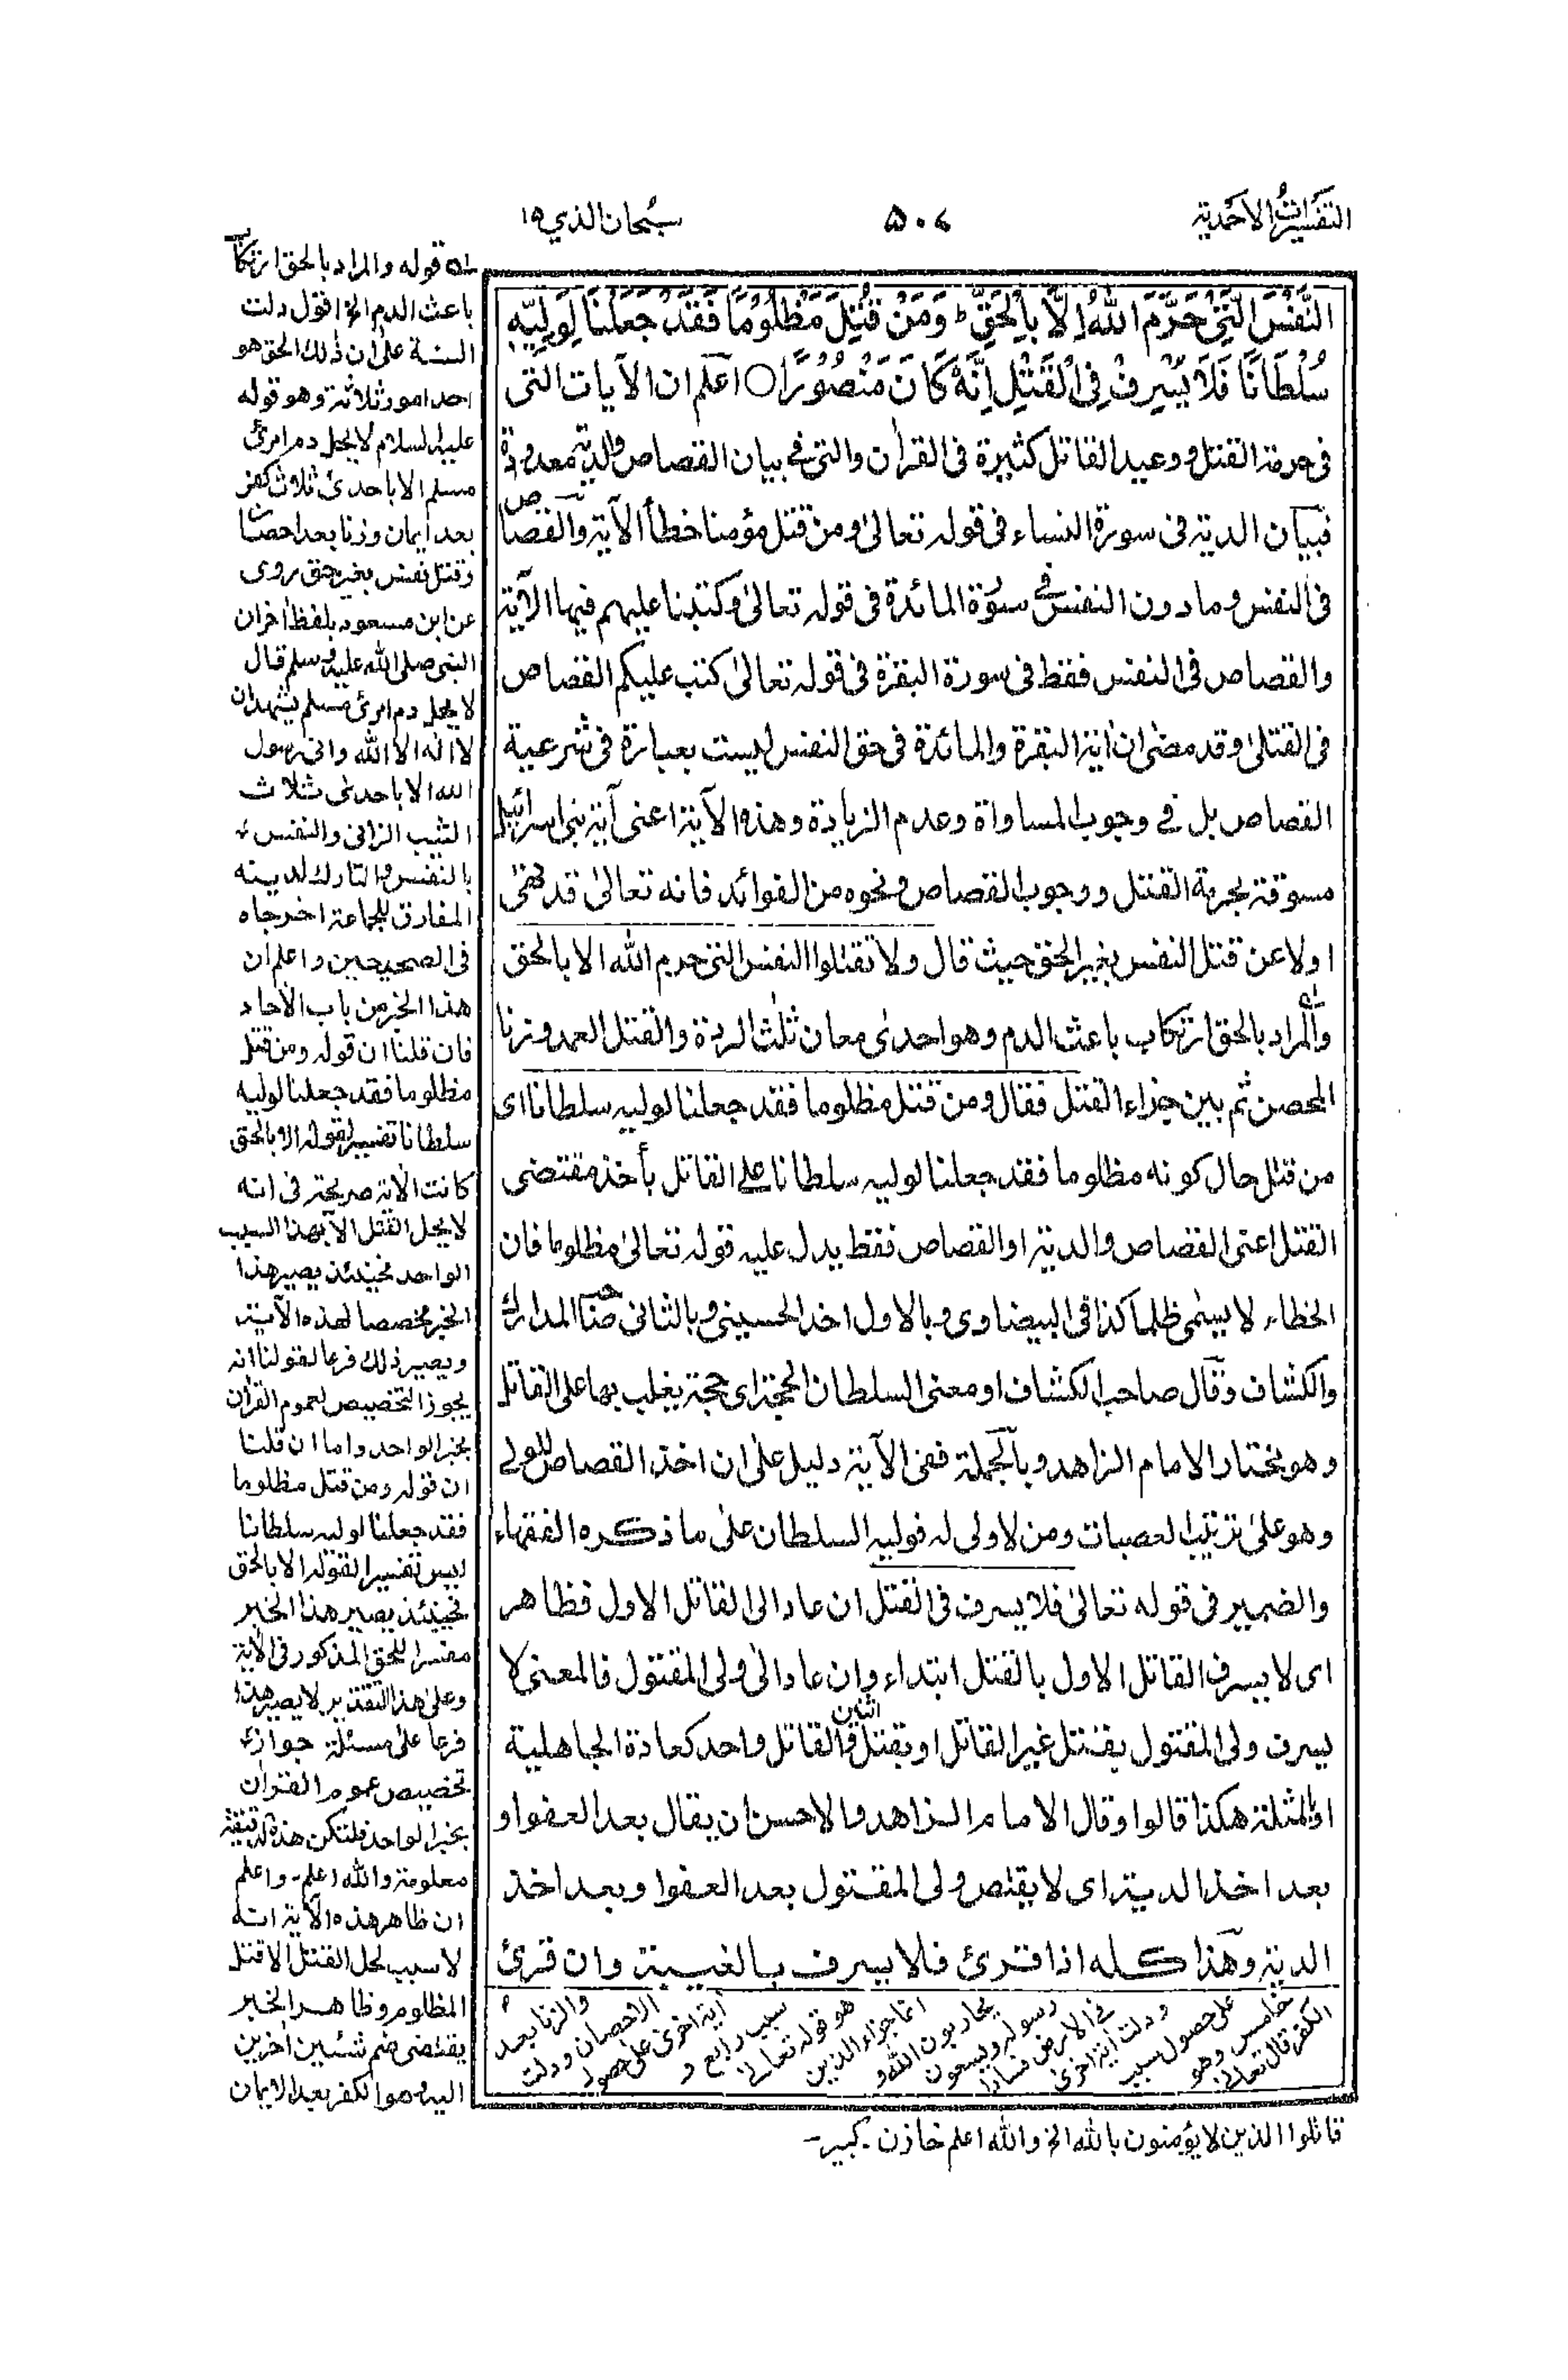 التفسيرات الاحمدية
٥٠٤
سبحان الذي ١٥
النَّفْسَ الَّتِيْ حَرَّمَ اللهُ اِلَّا بِالْحَقِّ ؕ وَمَنْ قُتِلَ مَظْلُوْمًا فَقَدْ جَعَلْنَا لِوَلِيِّهٖ
سُلْطَانًا فَلَا يُسْرِفْ فِي الْقَتْلِ اِنَّهٗ كَانَ مَنْصُوْرًا ○ اعلم ان الآيات التى
فى حرمة القتل و وعيد القاتل كثيرة فى القرأن والتى فى بيان القصاص والدية معدودة
فبيان الدية فى سورة النساء فى قوله تعالىٰ ومن قتل مؤمنا خطأ الآية والقصاص
فى النفس وما دون النفس فى سورة المائدة فى قوله تعالىٰ وكتبنا عليهم فيها الآية
والقصاص فى النفس فقط فى سورة البقرة فى قوله تعالىٰ كتب عليكم القصاص
فى القتلىٰ وقد مضىٰ ان اية البقرة والمائدة فى حق النفس ليست بعبارة فى شرعية
القصاص بل فى وجوب المساواة وعدم الزيادة وهذه الآية اعنى آية بنى اسرائيل
مسوقة لحرمة القتل ووجوب القصاص ونحوه من الفوائد فانه تعالىٰ قد نهىٰ
اولا عن قتل النفس بغير الحق حيث قال ولا تقتلوا النفس التى حرم الله الا بالحق
والمراد بالحق ارتكاب باعث الدم وهو احدىٰ معان ثلٰث الردة والقتل العمد وزنا
المحصن ثم بين جزاء القتل فقال ومن قتل مظلوما فقد جعلنا لوليه سلطانا اى
من قتل حال كونه مظلوما فقد جعلنا لوليه سلطانا على القاتل بأخذ مقتضى
القتل اعنى القصاص والدية او القصاص فقط يدل عليه قوله تعالىٰ مظلوما فان
الخطاء لا يسمىٰ ظلما كذا فى البيضاوى وبالاول اخذ الحسينى وبالثانى صاحب المدارك
والكشاف وقال صاحب الكشاف او معنى السلطان الحجة اى حجة يغلب بها على القاتل
وهو مختار الامام الزاهد وبالجملة ففى الآية دليل علىٰ ان اخذ القصاص للولى
وهو علىٰ ترتيب العصبات ومن لا ولى له فوليه السلطان علىٰ ما ذكره الفقهاء
والضمير فى قوله تعالىٰ فلا يسرف فى القتل ان عاد الى القاتل الاول فظاهر
اى لا يسرف القاتل الاول بالقتل ابتداء وان عاد الىٰ ولى المقتول فالمعنى لا
يسرف ولى المقتول بقتل غير القاتل او بقتل اثنان والقاتل واحد كعادة الجاهلية
او المثلة هكذا قالوا وقال الامام الزاهد والاحسن ان يقال بعد العفو او
بعد اخذ الدية اى لا يقتص ولى المقتول بعد العفوا وبعد اخذ
الدية وهذا كله اذا قرئ فلا يسرف بالغيبة وان قرئ
له قوله والمراد بالحق ارتكاب
باعث الدم الخ اقول دلت
السنة علىٰ ان ذٰلك الحق هو
احد امور ثلاثة وهو قوله
عليه السلام لا يحل دم امرئ
مسلم الا باحدىٰ ثلاث كفر
بعد ايمان وزنا بعد احصان
وقتل نفس بغير حق روى
عن ابن مسعود بلفظ اٰخر ان
النبى صلى الله عليه وسلم قال
لا يحل دم امرئ مسلم يشهد ان
لا اله الا الله وانى رسول
الله الا باحدىٰ ثلاث
الثيب الزانى والنفس
بالنفس والتارك لدينه
المفارق للجماعة اخرجاه
فى الصحيحين واعلم ان
هذا الخبر من باب الآحاد
فان قلنا ان قوله ومن قتل
مظلوما فقد جعلنا لوليه
سلطانا تفسير لقوله الا بالحق
كانت الاٰية صريحة فى انه
لا يحل القتل الا بهذا السبب
الواحد فحينئذ يصير هذا
الخبر مخصصا لهذه الآية
ويصير ذلك فرعا لقولنا انه
يجوز التخصيص لعموم القراٰن
بخبر الواحد واما ان قلنا
ان قوله ومن قتل مظلوما
فقد جعلنا لوليه سلطانا
ليس تفسيرا لقوله الا بالحق
فحينئذ يصير هذا الخبر
مفسرا للحق المذكور فى الاٰية
وعلىٰ هذا التقدير لا يصير هذا
فرعا علىٰ مسئلة جواز
تخصيص عموم القراٰن
بخبر الواحد فلتكن هذه الدقيقة
معلومة والله اعلم۔ واعلم
ان ظاهر هذه الآية انه
لا سبب لحل القتل الا قتل
المظلوم وظاهر الخبر
يقتضى ضم شئيين اٰخرين
اليه وهوا لكفر بعد الايمان
والزنا بعد
الاحصان ودلت
اية اخرىٰ على حصول
سبب رابع و
هو قوله تعالىٰ
انما جزاء الذين
يحاربون الله و
رسوله ويسعون
فى الارض فسادا
ودلت اية اخرىٰ
على حصول سبب
خامس وهو
الكفر قال تعالىٰ
قاتلوا الذين لا يؤمنون بالله الخ والله اعلم خازن۔ كبير۔